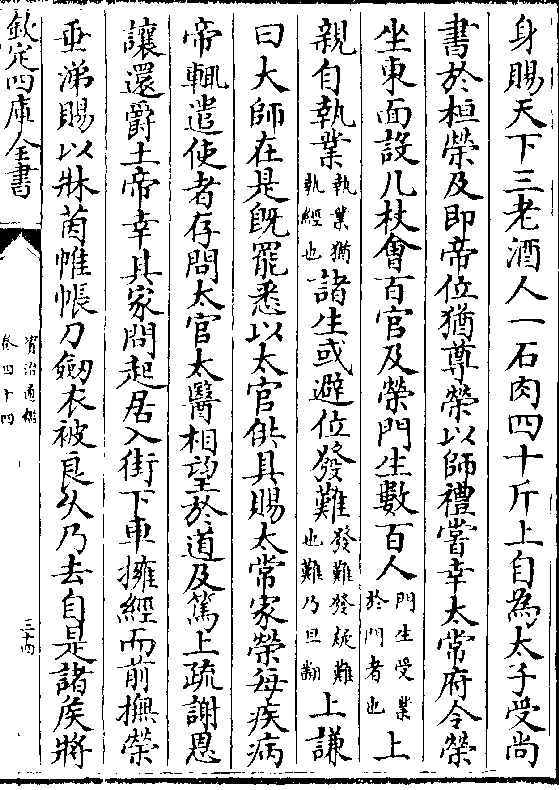 身賜天下三老酒人一石肉四十斤上自為太子受尚
書於桓榮及即帝位猶尊榮以師禮嘗幸太常府令榮
坐東面設几杖會百官及榮門生數百人門生受業於門者也上
親自執業執業猶執經也諸生或避位發難發難發疑難也難乃旦翻上謙
曰大師在是旣罷悉以太官供具賜太常家榮每疾病
帝輒遣使者存問太官太醫相望於道及篤上疏謝恩
讓還爵土帝幸其家問起居入街下車擁經而前撫榮
垂涕賜以牀茵帷帳刀劒衣被良久乃去自是諸侯將
欽定四庫全書
資治通鑑
卷四十四
三十四